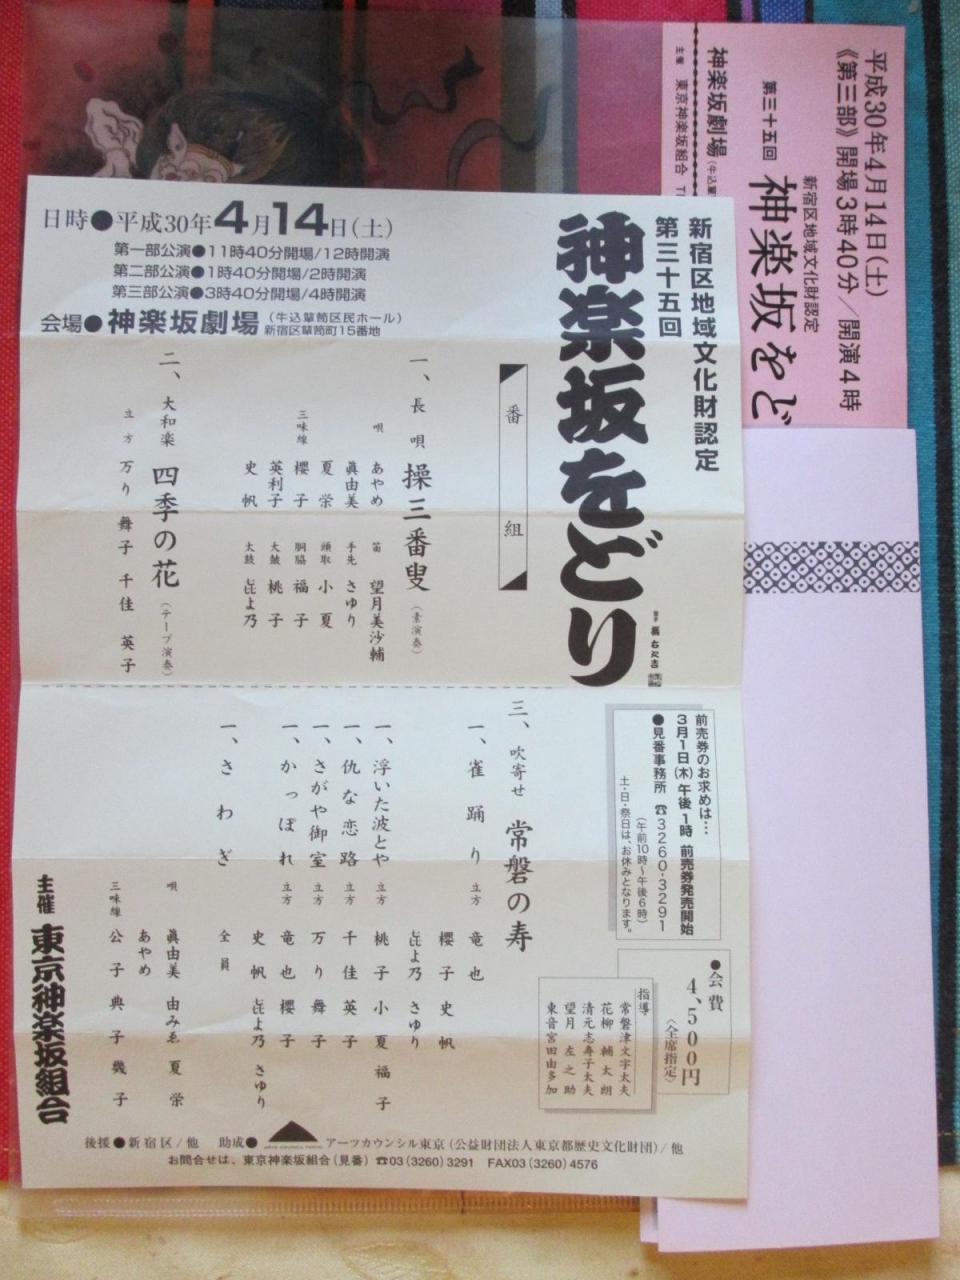 平成30年4月14日(土)
《第三部》開場3時40分/開演4時
新宿区地域文化財認定
第三十五回
神楽坂をど
神楽坂劇場
主催 東京神楽坂組合
新宿区地域文化財認定
第三十五回
神楽坂をどり
日時●平成30年4月14日(土)
第一部公演●11時40分開場/12時開演
第二部公演●1時40分開場/2時開演
第三部公演●3時40分開場/4時開演
会場●神楽坂劇場(牛込簞笥区民ホール)
新宿区簞笥町15番地
番組
一、長唄 操三番叟(素演奏)
唄 あやめ 笛 望月美沙輔
眞由美 手先 さゆり
夏栄 頭取 小夏
三味線 櫻子 胴脇 福子
英利子 大鼓 桃子
史帆 太鼓 㐂よ乃
二、大和楽 四季の花(テープ演奏)
立方 万り 舞子 千佳 英子
前売券のお求めは…
3月1日(木)午後1時 前売券発売開始
●見番事務所 ☎3260-3291
(午前10時~午後6時)
土・日・祭日は、お休みとなります。
●会費
4,500円
〈全席指定〉
指導
常磐津文字太夫
花柳輔太朗
清元志寿子太夫
望月左之助
東音宮田由多加
三、吹寄せ 常磐の寿
一、雀踊り 立方 竜也
櫻子 史帆
㐂よ乃 さゆり
一、浮いた波とや 立方 桃子 小夏 福子
一、仇な恋路 立方 千佳 英子
一、さがや御室 立方 万り 舞子
一、かっぽれ 立方 竜也 櫻子
史帆 㐂よ乃 さゆり
一、さわぎ 全員
唄 眞由美 由みゑ 夏栄
あやめ
三味線 公子 典子 幾子
主催 東京神楽坂組合
後援●新宿区/他 助成●アーツカウンシル東京(公益財団法人東京都歴史文化財団)/他
お問合せは、東京神楽坂組合(見番) ☎03(3260)3291 FAX03(3260)4576